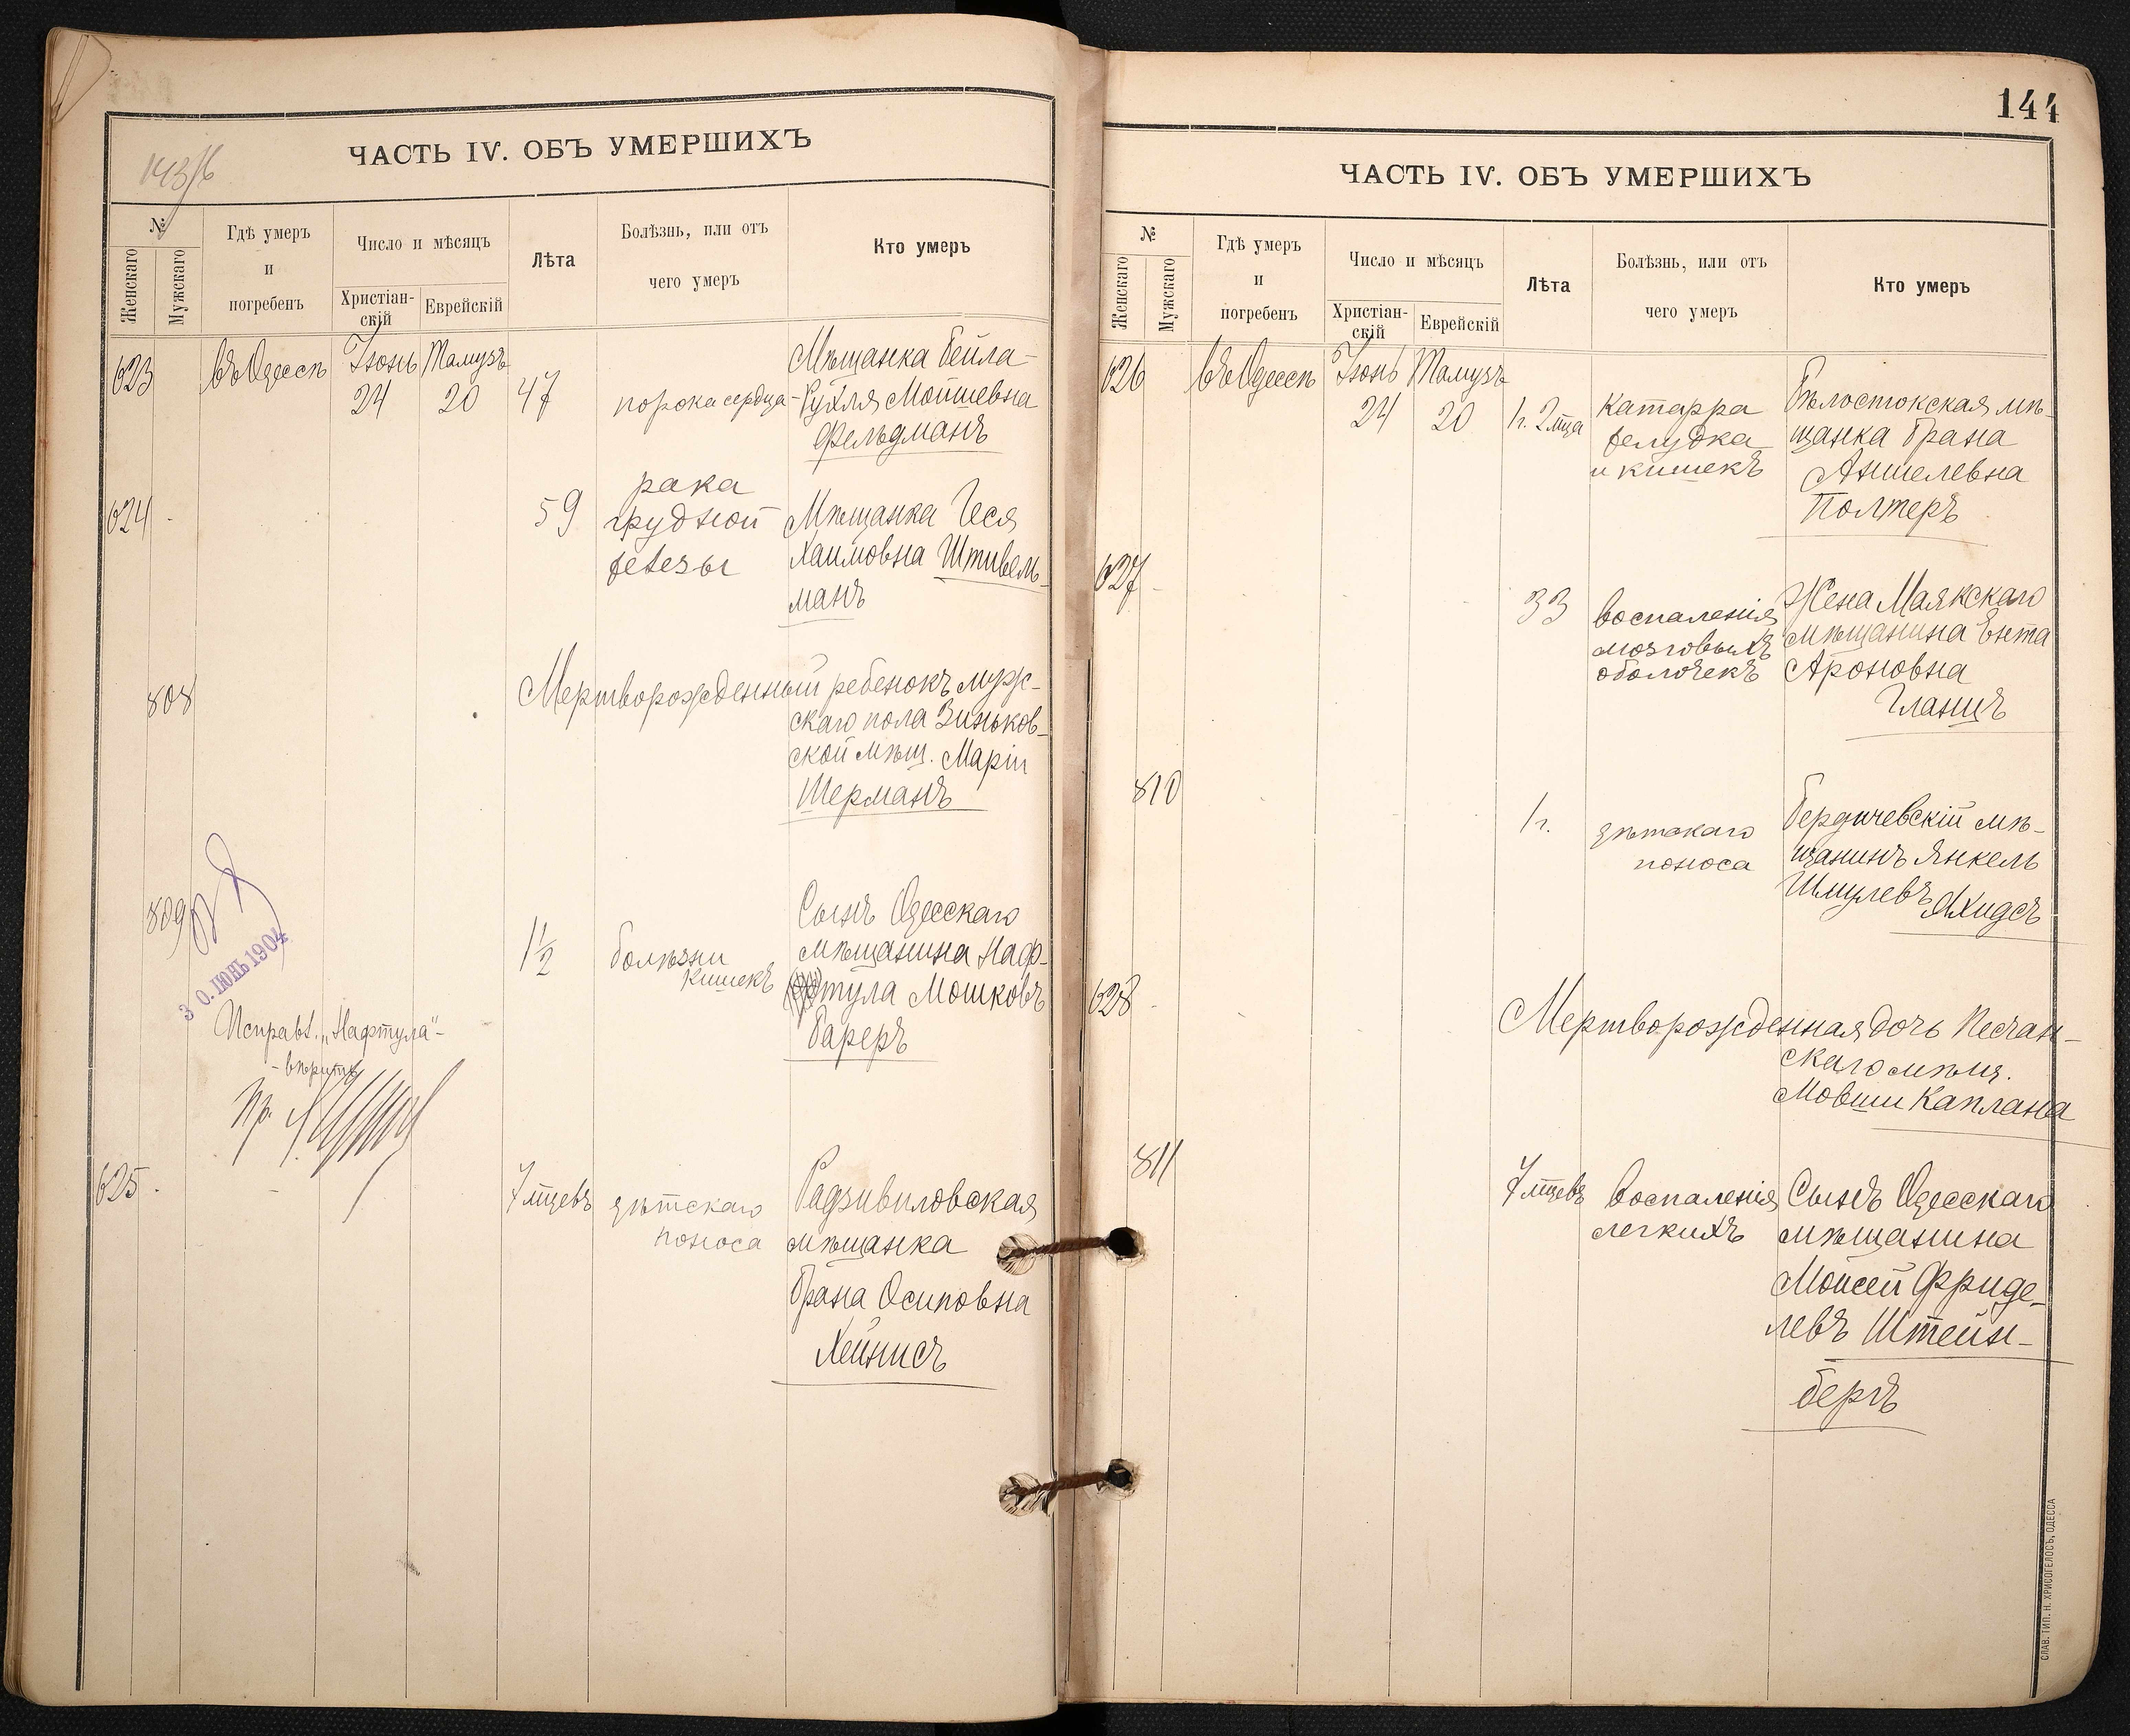 143/б
ЧАСТЬ IV. ОБЪ УМЕРШИХЪ
№
Женскаго
Мужскаго
Гдѣ умеръ
и
погребенъ
Число и мѣсяцъ
Христіан-
скій
Еврейскій
Лѣта
Болѣзнь, или отъ
чего умеръ
Кто умеръ
623
въ Одессѣ
Іюнь
24
Тамузъ
20
47
порока сердца
Мѣщанка Бейла-
Рухля Мошевна
Фельдманъ
624
59
рака
грудной
железы
Мѣщанка Геся
Хаимовна Штивель-
манъ
808
Мертворожденный ребенокъ муж-
скаго пола Зиньков-
ской мѣщ. Маріи
Шерманъ
809
30. ІЮНЬ 1904
1½
болѣзни
кишекъ
Сынъ Одесскаго
мѣщанина Наф-
тула Мошковъ
Бареръ
Исправл. „Нафтула“-
- вѣрить
625.
7 мцевъ
дѣтскаго
поноса
Радзивиловская
мѣщанка
Брана Осиповна
Хейнисъ
144
ЧАСТЬ IV. ОБЪ УМЕРШИХЪ
№
Женскаго
Мужскаго
Гдѣ умеръ
и
погребенъ
Число и мѣсяцъ
Христіан-
скій
Еврейскій
Лѣта
Болѣзнь, или отъ
чего умеръ
Кто умеръ
626
въ Одессѣ
Іюнь
24
Тамузъ
20
1 г. 2 мца
катарра
желудка
и кишекъ
Бѣлостокская мѣ-
щанка Брана
Аншелевна
Полтеръ
627
33
воспаленія
мозговыхъ
оболочекъ
Жена Маякскаго
мѣщанина Ента
Ароновна
Гланцъ
810
1 г.
дѣтскаго
поноса
Бердичевскій мѣ-
щанинъ Янкель
Шмулевъ Яхидсъ
628
Мертворожденная дочь Песчан-
скаго мѣщ.
Мовши Каплана
811
7 мцевъ
воспаленія
легкихъ
Сынъ Одесскаго
мѣщанина
Моисей Фриде-
левъ Штейн-
бергъ
СЛАВ. ТИП. Н. ХРИСОГЕЛОСЪ, ОДЕССА